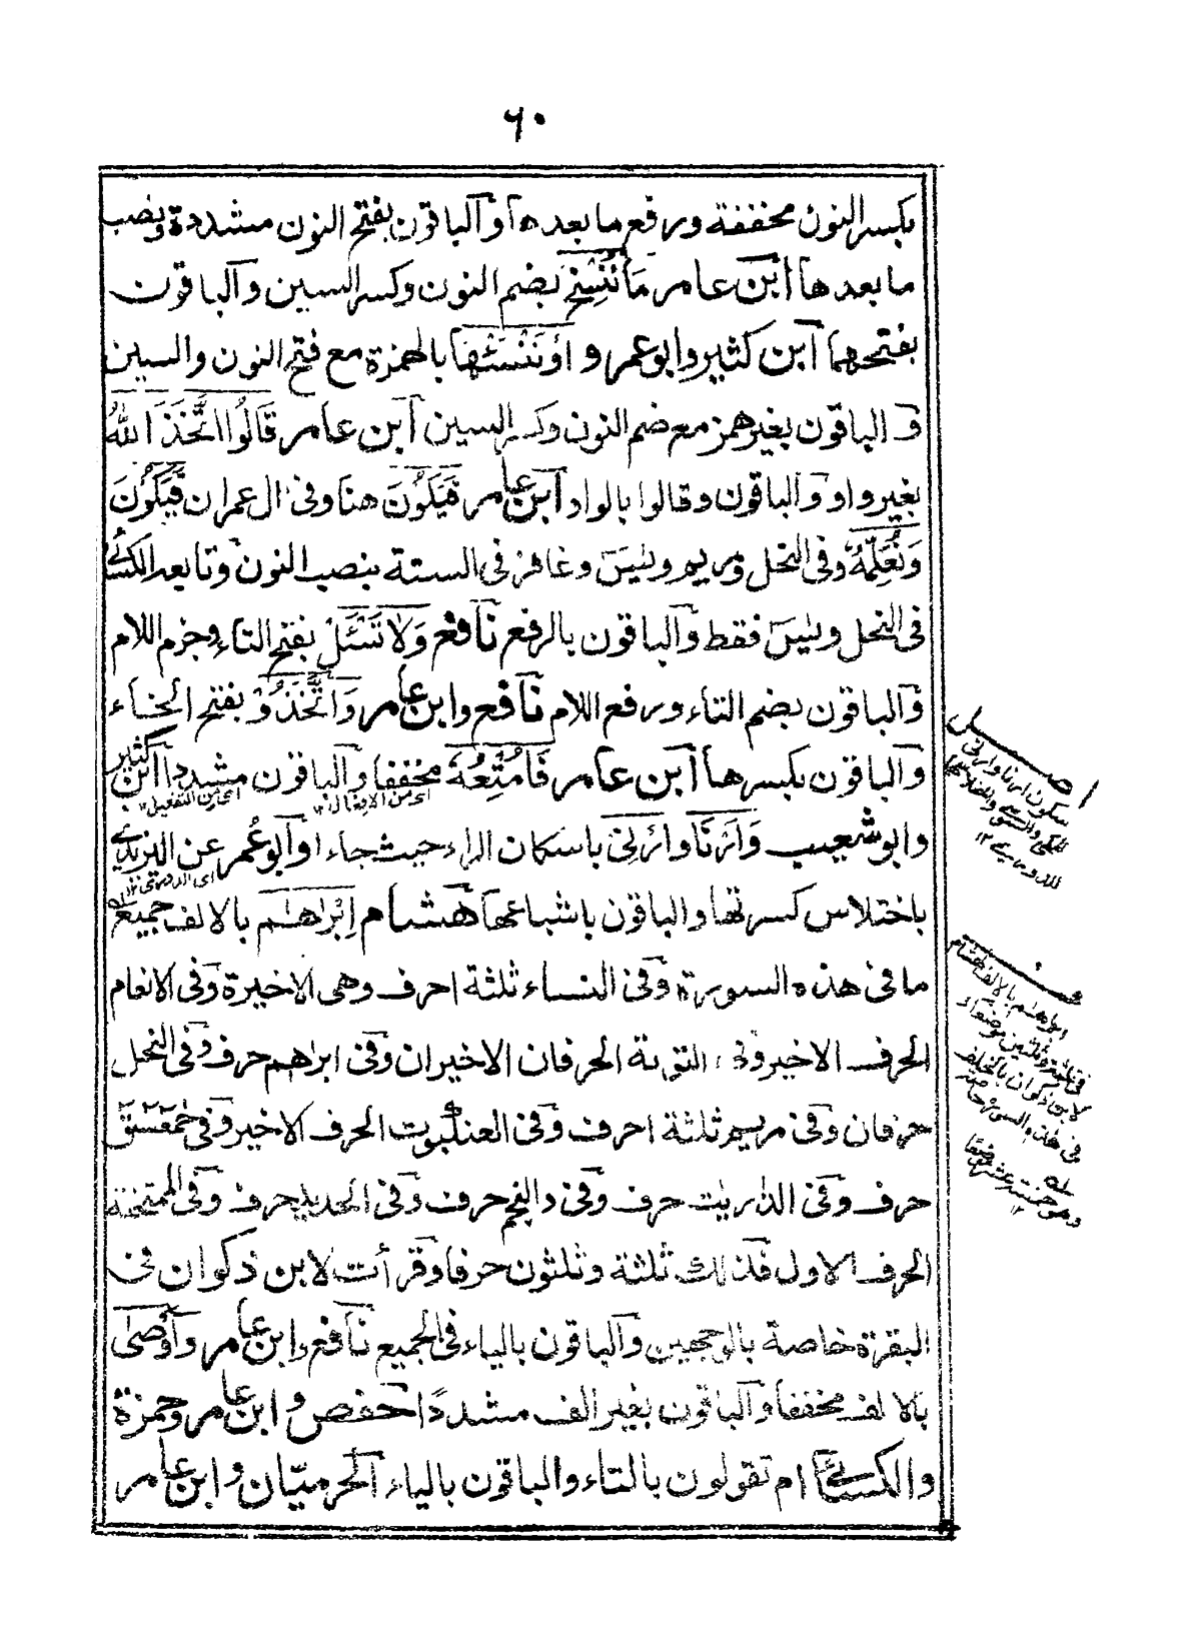 ٦٠
بكسر النون مخففة ورفع ما بعدها والباقون بفتح النون مشددة ونصب
ما بعدها ابن عامر مَا نُنْسِخْ بضم النون وكسر السين والباقون
بفتحهما ابن كثير وابو عمرو اَوْنَنْسَئْهَا بالهمزة مع فتح النون والسين
والباقون بغير همز مع ضم النون وكسر السين ابن عامر قَالُوا اتَّخَذَ اللهُ
بغير واو والباقون وقالوا بالواو ابن عامر فَيَكُوْنَ هنا وفي ال عمران فَيَكُوْنَ
وَنُعَلِّمُهُ وفى النحل ومريم ويٰسٓ وغافر فى الستة بنصب النون وتابعه الكسائى
فى النحل ويٰسٓ فقط والباقون بالرفع نافع وَلَا تَسْئَلْ بفتح التاء وجزم اللام
والباقون بضم التاء ورفع اللام نافع وابن عامر وَاتَّخَذُوْا بفتح الخاء
والباقون بكسرها ابن عامر فَاُمْتِعُهُ مخففا والباقون مشددا ابن كثير
اى من الافعال ١٢ اى من التفعيل ١٢
وابو شعيب وَاَرْنَا واَرْنِىْ باسكان الراء حيث جاءا وابو عمر عن اليزيدى
اى الدورى ١٢
باختلاس كسرتها والباقون باشباعها هشام اِبْرٰاهٰم بالالف جميع
ما فى هذه السورة وفى النساء ثلثة احرف وهى الاخيرة وفى الانعام
الحرف الاخير وفى التوبة الحرفان الاخيران وفى ابراهم حرف وفى النحل
حرفان وفى مريم ثلثة احرف وفى العنكبوت الحرف الاخير وفى حٓمٓعٓسٓقٓ
حرف وفى الذٰريٰت حرف وفى والنجم حرف وفى الحديد حرف وفى الممتحنة
الحرف الاول فذلك ثلثة وثلثون حرفا وقرأت لابن ذكوان فى
البقرة خاصة بالوجهين والباقون بالياء فى الجميع نافع وابن عامر وَاَوْصٰى
بالالف مخففا والباقون بغير الف مشددًا حفص وابن عامر وحمزة
والكسائى ام تقولون بالتاء والباقون بالياء الحرميّان وابن عامر
سكون ارنا وارنى
ابراهٰم بالالف لهشام
لابن ذكوان بالخلف
فى هذه السورة خاصة